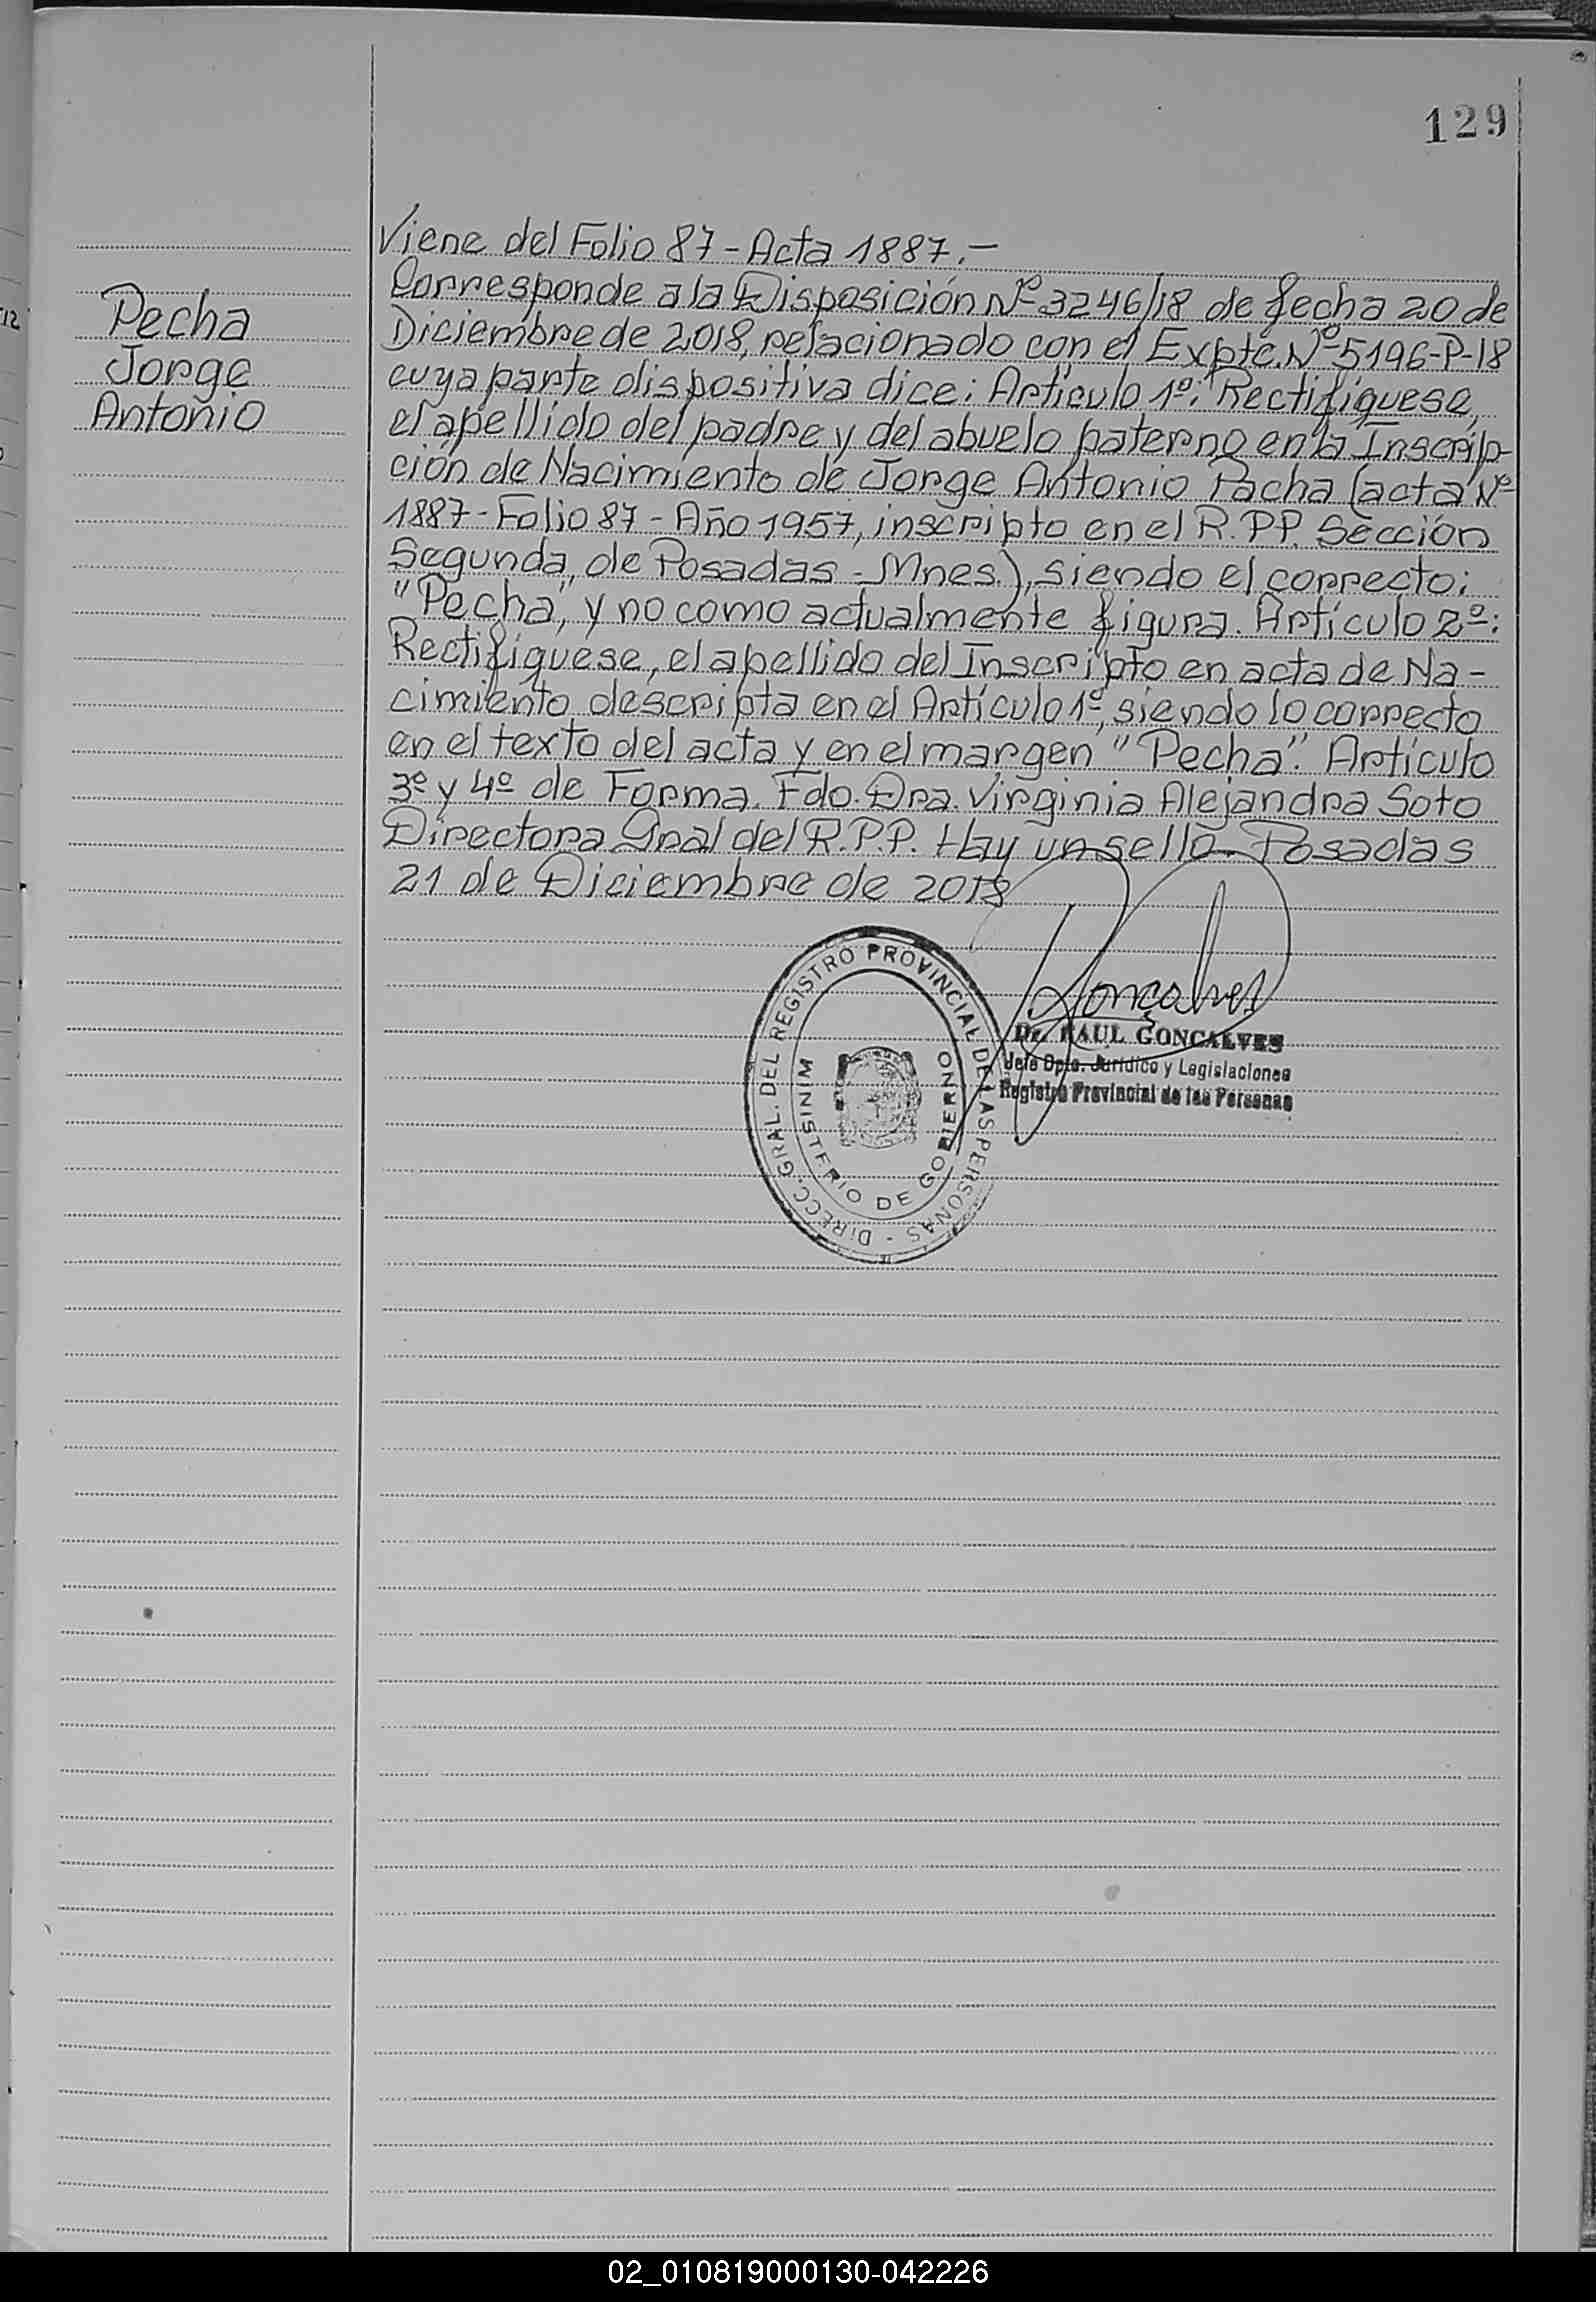 129
Viene del Folio 87 - Acta 1887.-
Pecha
Jorge
Antonio
Corresponde a la Disposición Nº 3246/18 de fecha 20 de
Diciembre de 2018, relacionado con el Expte. Nº 5196-P-18
cuya parte dispositiva dice: Artículo 1º: Rectifíquese,
el apellido del padre y del abuelo paterno en la Inscrip-
ción de Nacimiento de Jorge Antonio Pacha (acta Nº
1887 - Folio 87 - Año 1957, inscripto en el R.P.P. Sección
Segunda, de Posadas - Mnes.), siendo el correcto:
"Pecha", y no como actualmente figura. Artículo 2º:
Rectifíquese, el apellido del Inscripto en acta de Na-
cimiento descripta en el Artículo 1º, siendo lo correcto
en el texto del acta y en el margen "Pecha". Artículo
3º y 4º de Forma. Fdo. Dra. Virginia Alejandra Soto
Directora Gral del R.P.P. Hay un sello. Posadas
21 de Diciembre de 2018
Goncalves
Dr. RAUL GONCALVES
Jefe Dpto. Jurídico y Legislaciones
Registro Provincial de las Personas
DIRECC. GRAL. DEL REGISTRO PROVINCIAL DE LAS PERSONAS -
MINISTERIO DE GOBIERNO
12
02_010819000130-042226